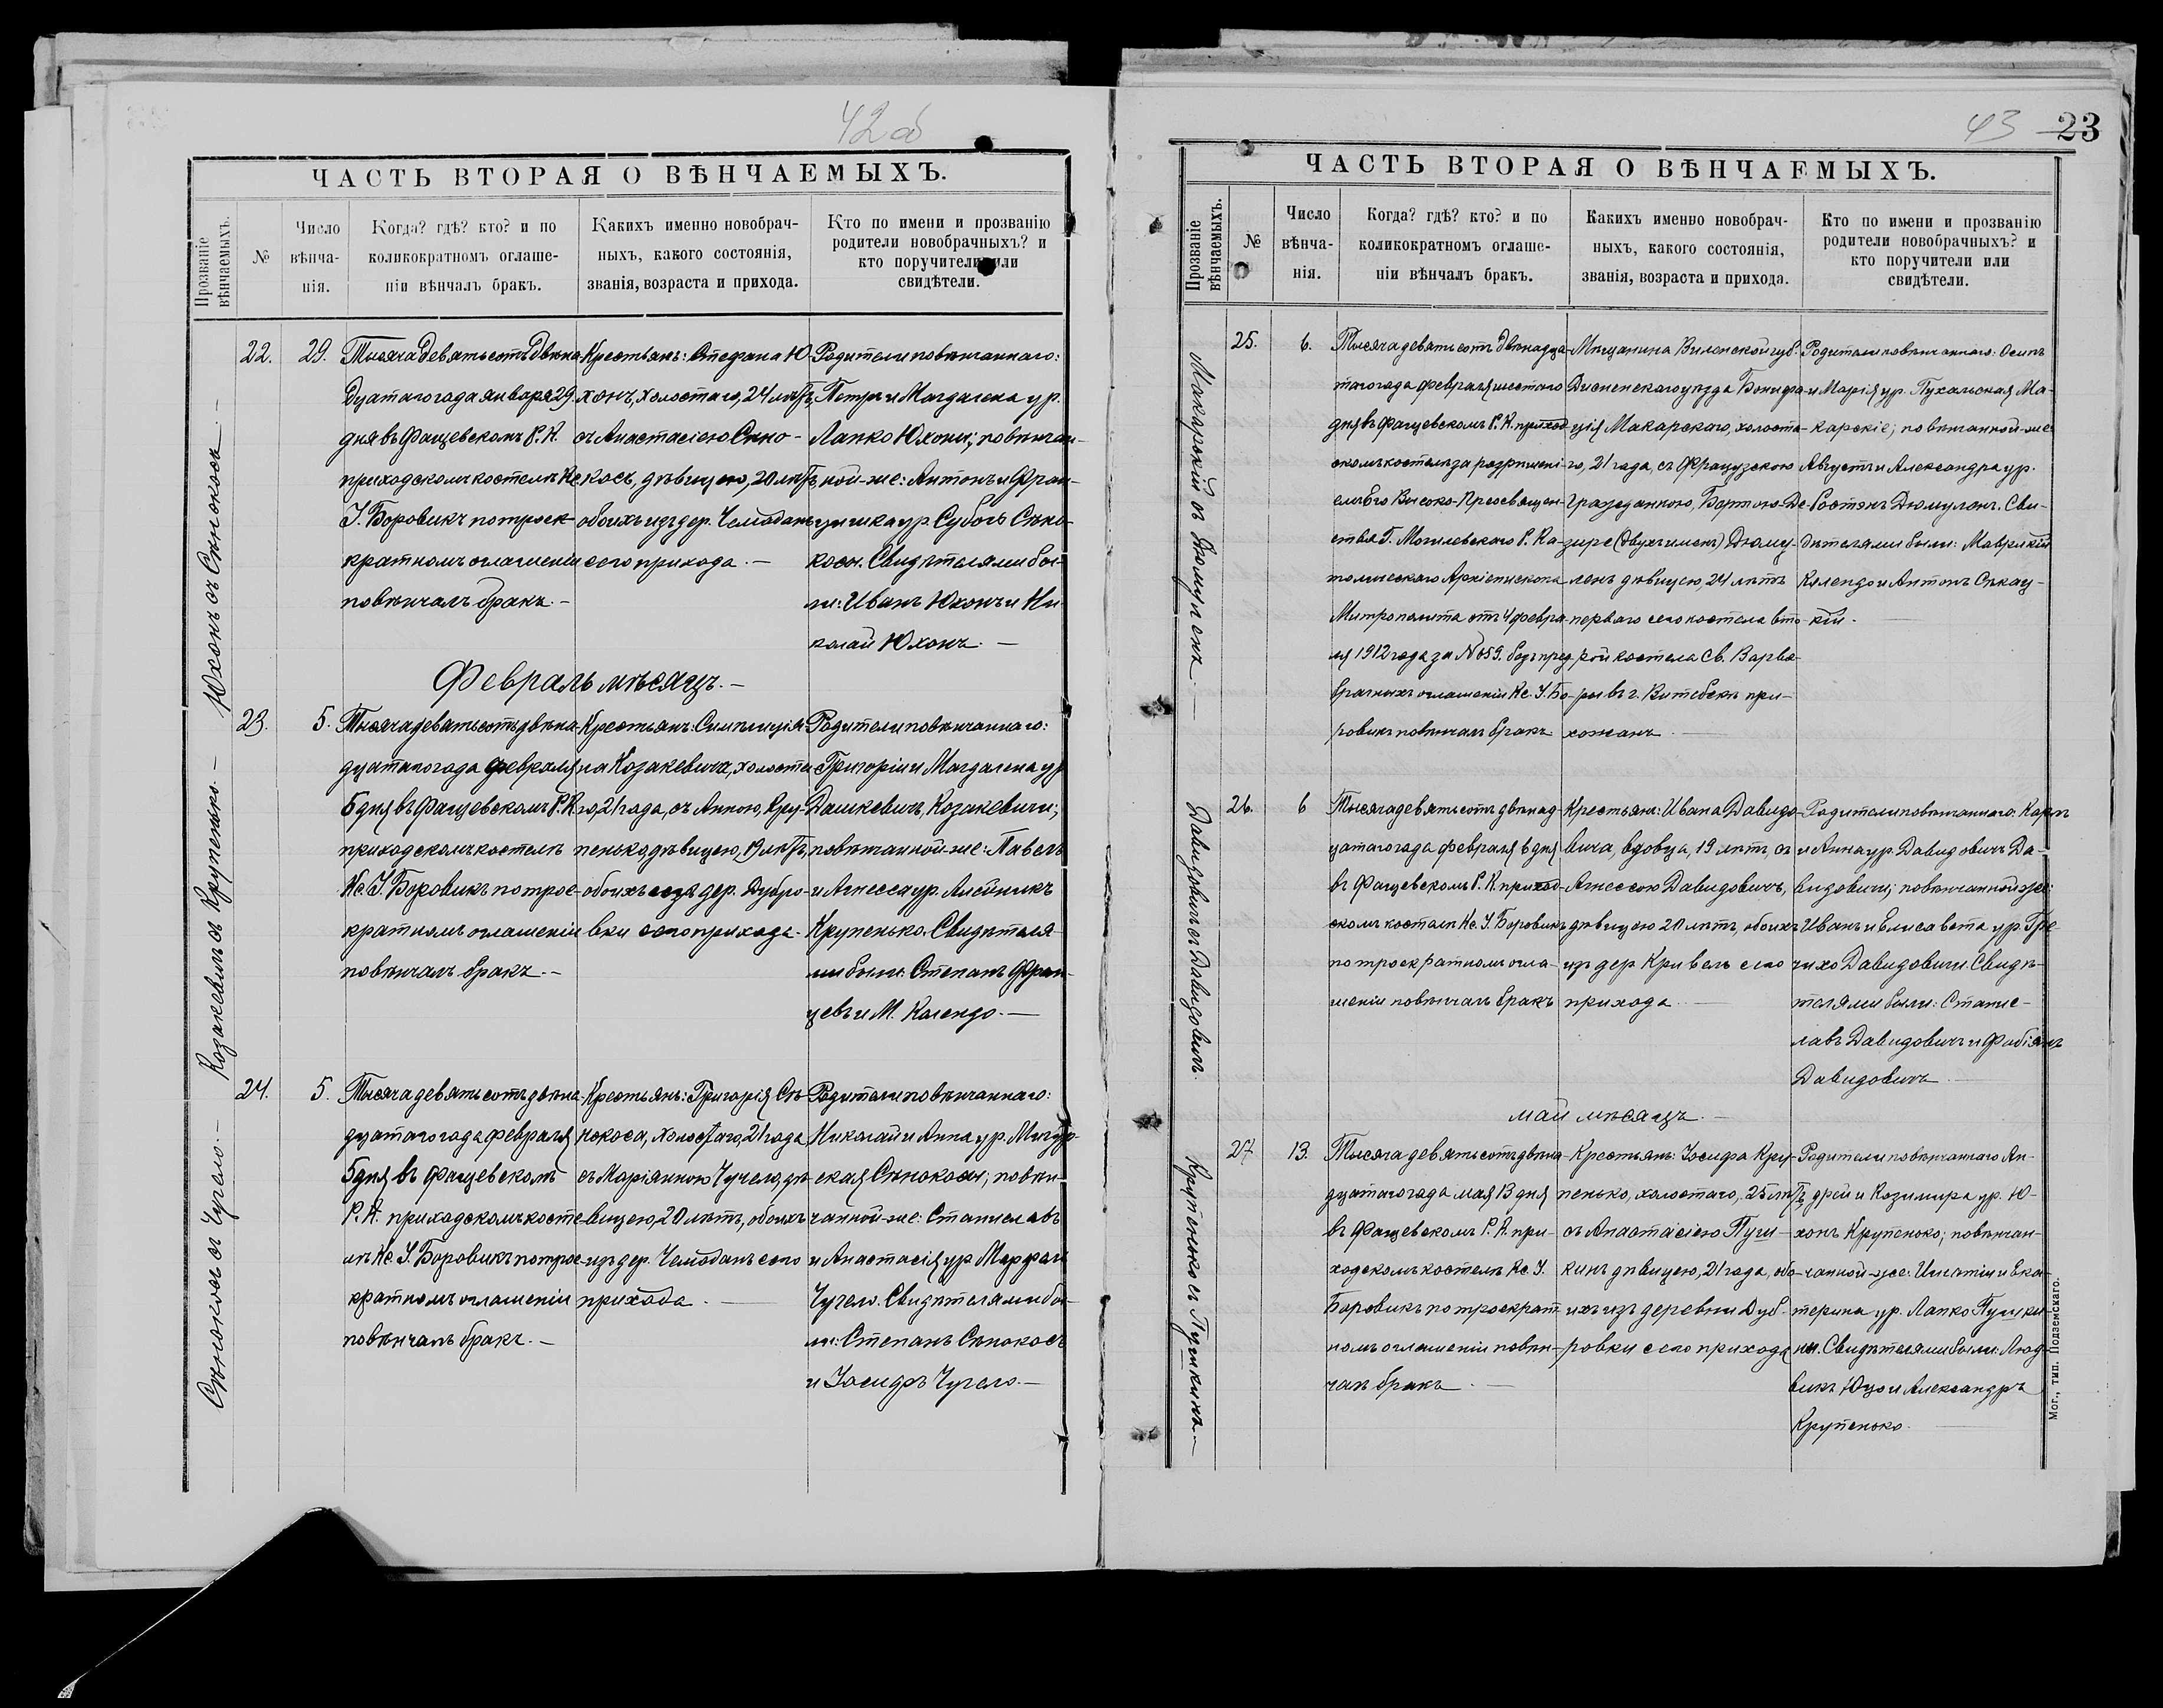 42 об
ЧАСТЬ ВТОРАЯ О ВѢНЧАЕМЫХЪ.
Прозваніе вѣнчаемыхъ.
№
Число вѣнча-нія.
Когда? гдѣ? кто? и по
коликократномъ оглаше-
ніи вѣнчалъ бракъ.
Какихъ именно новобрач-
ныхъ, какого состоянія,
званія, возраста и прихода.
Кто по имени и прозванію
родители новобрачныхъ? и
кто поручители или
свидѣтели.
Юхонъ съ Сѣнокоса.—
22.
29.
Тысяча девятьсотъ двѣна-
дцатаго года января 29
дня въ Фащевскомъ Р. К.
приходскомъ костелѣ Кс
І. Боровикъ по троек-
кратномъ оглашеніи
повѣнчалъ бракъ.—
Крестьянъ: Стефана Ю-
хонъ, холостаго, 24 лѣтъ,
съ Анастасіею Сѣно-
косъ, дѣвицею, 20 лѣтъ,
обоихъ изъ дер. Чемоданъ
сего прихода.—
Родители повѣнчаннаго:
Петръ и Магдалена ур.
Лапко Юхоны; повѣнчан-
ной-же: Антонъ и Фран-
цишка ур. Суботъ Сѣно-
косы. Свидѣтелями бы-
ли: Иванъ Юхонъ и Ни-
колай Юхонъ.—
Февраль мѣсяцъ.—
Козакевичъ съ Крупенько.—
23.
5.
Тысяча девятьсотъ двѣна-
дцатаго года февраля
5 дня въ Фащевскомъ Р. К.
приходскомъ костелѣ
Кс. І. Боровикъ по трое-
кратномъ оглашеніи
повѣнчалъ бракъ.—
Крестьянъ: Симплиція-
на Козакевича, холоста-
го, 21 года, съ Анною Кру-
пенько, дѣвицею, 19 лѣтъ,
обоихъ изъ дер. Дубро-
вки сего прихода.
Родители повѣнчаннаго:
Григорій и Магдалена ур
Дашкевичъ, Козакевичи;
повѣнчанной-же: Павелъ
и Агнесса ур. Алейникъ
Крупенько. Свидѣтеля-
ми были: Степанъ Фран-
цевъ и М. Колендо.—
Сѣнокосъ съ Чучело.—
24.
5.
Тысяча девятьсотъ двѣна-
дцатаго года февраля
5 дня въ Фащевскомъ
Р. К. приходскомъ косте-
лѣ Кс. І. Боровикъ по трое-
кратномъ оглашеніи
повѣнчалъ бракъ.—
Крестьянъ: Григорія Сѣ-
нокоса, холостаго, 21 года
съ Маріянною Чучело, дѣ-
вицею, 20 лѣтъ, обоихъ
изъ дер. Чемоданъ сего
прихода.—
Родители повѣнчаннаго:
Николай и Анна ур.
Сѣнокосы; повѣн-
чанной-же: Станиславъ
и Анастасія ур
Чучело. Свидѣтелями бы-
ли: Степанъ Сѣнокосъ
и Іосифъ Чучело.—
43 23
ЧАСТЬ ВТОРАЯ О ВѢНЧАЕМЫХЪ.
Прозваніе вѣнчаемыхъ.
№
Число вѣнча-нія.
Когда? гдѣ? кто? и по
коликократномъ оглаше-
ніи вѣнчалъ бракъ.
Какихъ именно новобрач-
ныхъ, какого состоянія,
званія, возраста и прихода.
Кто по имени и прозванію
родители новобрачныхъ? и
кто поручители или
свидѣтели.
Макарскій съ Дюмуленъ.—
25.
6.
Тысяча девятьсотъ двѣнадца-
таго года февраля шестого
дня въ Фащевскомъ Р. К. приход-
скомъ костелѣ за разрѣшені-
емъ Его Высоко-Преосвящен-
ства Г. Могилевскаго Р. Ка-
толическаго Архіепископа
Митрополита отъ 4 февра-
ля 1912 года за № 659. безъ пред-
брачныхъ оглашеній Кс. І. Бо-
ровикъ повѣнчалъ бракъ
Мѣщанина Виленской губ.
Дисненскаго уѣзда Бонифа-
ція Макарскаго, холоста-
го, 21 года, съ Французскою
Гражданкою,
(двухъ именъ) Дюму-
ленъ дѣвицею, 24 лѣтъ
перваго сего костела вто-
рой костела Св. Варва-
ры въ г. Витебскѣ при-
хожанъ.—
Родители повѣнчаннаго: Осипъ
и Марія ур. Пухальская Ма-
карскіе; повѣнчанной-же
Августъ и Александра ур.
Дюмуленъ. Сви-
дѣтелями были: Маврикій
Колендо и Антонъ Сѣкац-
кій.—
Давидовичъ съ Давидовичъ.
26.
6
Тысяча девятьсотъ двѣнад-
цатаго года февраля 6 дня
въ Фащевскомъ Р. К. приход-
скомъ костелѣ Кс. І. Боровикъ
по троекратномъ огла-
шеніи повѣнчалъ бракъ
Крестьянъ: Ивана Давидо-
вича, вдовца, 19 лѣтъ, съ
Агнессою Давидовичъ,
дѣвицею 20 лѣтъ, обоихъ
изъ дер Кривель сего
прихода.—
Родители повѣнчаннаго: Карлъ
и Анна ур. Давидовичъ Да-
видовичи; повѣнчанной же:
Иванъ и Елисавета ур. Гре-
чихо Давидовичи. Свидѣ-
телями были: Станис-
лавъ Давидовичъ и Фабіянъ
Давидовичъ.—
май мѣсяцъ.—
Крупенько съ Пушкинъ.—
27
13.
Тысяча девятьсотъ двѣна-
дцатаго года мая 13 дня
въ Фащевскомъ Р. К. при-
ходскомъ костелѣ Кс. І.
Боровикъ по троекрат-
номъ оглашеніи повѣн-
чалъ бракъ.—
Крестьянъ: Іосифа Кру-
пенько, холостаго, 25 лѣтъ
съ Анастасіею Пуш-
кинъ дѣвицею, 21 года, обо-
ихъ изъ деревни Дуб-
ровки сего прихода
Родители повѣнчаннаго Ан-
дрей и Казимира ур. Ю-
хонъ Крупенько; повѣнчан-
чанной-же: Игнатій и Ека-
терина ур. Лапко Пушки-
ны. Свидѣтелями были: Люд-
викъ Юцо и Александръ
Крупенько.—
Мог., тип. Подземскаго.